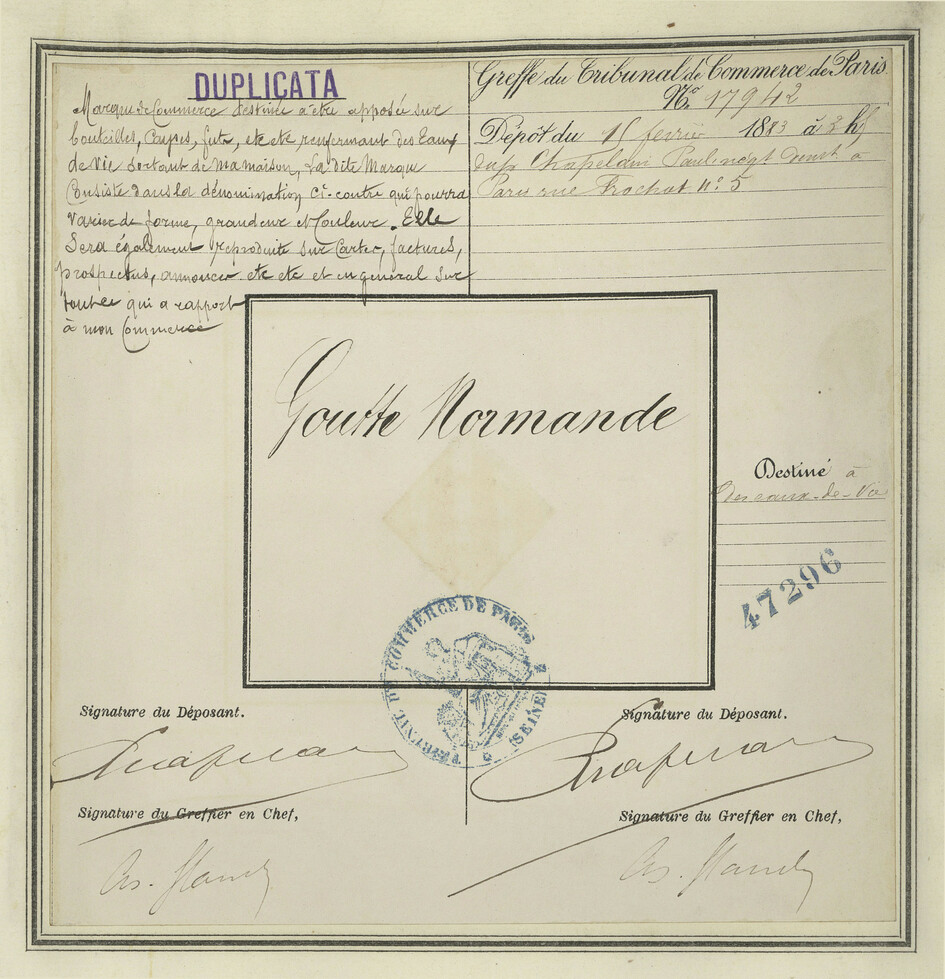 DUPLICATA
Marque de Commerce destinée a être apposée sur
bouteilles, Caisses, futs, etc etc renfermant des Eaux
de Vie sortant de ma maison, La dite Marque
Consiste dans la dénomination ci-contre qui pourra
varier de forme, grandeur et Couleur. Elle
Sera également reproduite sur Cartes, factures,
prospectus, annonces etc etc et en général sur
tout ce qui a rapport
à mon Commerce
Greffe du Tribunal de Commerce de Paris
No. 17942
Dépôt du 15 février 1883 à 3 h
Chapelain Paul negt demt à
Paris rue Frochot No. 5
Goutte Normande
Destiné à
Des eaux-de-Vie
47296
TRIBUNAL DE COMMERCE DE PARIS
SEINE
Signature du Déposant.
Signature du Déposant.
Signature du Greffier en Chef,
Signature du Greffier en Chef,